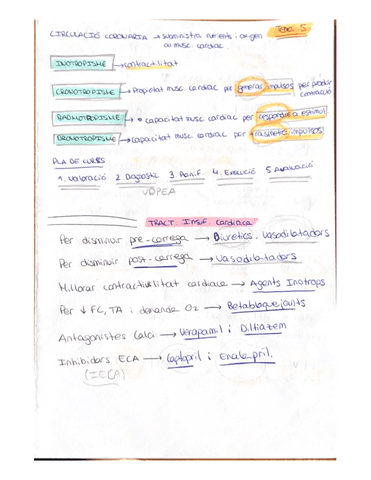 Tema 5
CIRCULACIÓ CORONARIA → subministra nutrients i oxigen
al musc. cardíac.
INOTROPISME → contractilitat
CRONOTROPISME → Propietat musc. cardíac per generar impulsos per produir contracció
BADMOTROPISME → capacitat musc. cardíac per respondre a estímul
DROMOTROPISME → capacitat musc. cardíac per trasmetre impulsos
PLA DE CURES
1. Valoració 2. Diagnostic 3. Planif. 4. Execució 5. Avaluació
VDPEA
TRACT. INSUF. Cardíaca
Per disminuir pre-carrega → Diuretics, Vasodilatadors
Per disminuir post-carrega → Vasodilatadors
Millorar contractivilitat cardíaca → Agents Inotrops
Per ↓ FC, TA i demanda O2 → Betabloquejants
Antagonistes Calci → Verapamil i Diltiazem
Inhibidors ECA → Captopril i Enalapril.
(IECA)